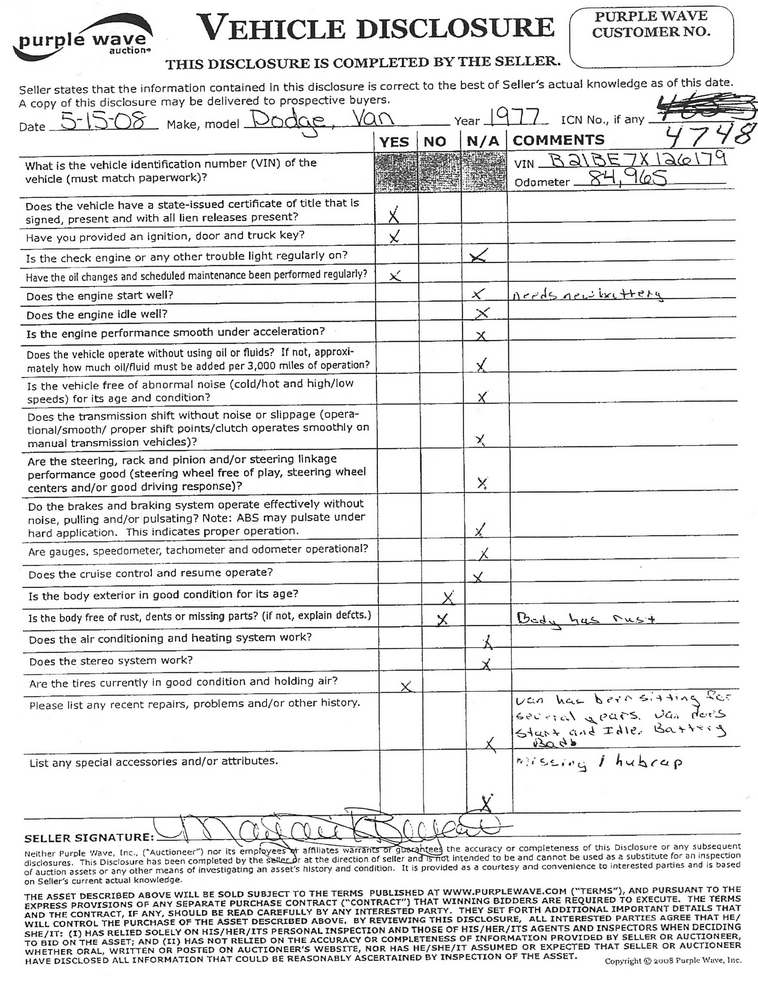 purple wave
auction
VEHICLE DISCLOSURE
PURPLE WAVE
CUSTOMER NO.
THIS DISCLOSURE IS COMPLETED BY THE SELLER.
Seller states that the information contained in this disclosure is correct to the best of Seller's actual knowledge as of this date.
A copy of this disclosure may be delivered to prospective buyers.
Date 5-15-08 Make, model Dodge, Van Year 1977 ICN No., if any
4748
YES NO N/A COMMENTS
What is the vehicle identification number (VIN) of the VIN B21BE7X126179
vehicle (must match paperwork)? Odometer 84,965
Does the vehicle have a state-issued certificate of title that is
signed, present and with all lien releases present? X
Have you provided an ignition, door and truck key? X
Is the check engine or any other trouble light regularly on? X
Have the oil changes and scheduled maintenance been performed regularly? X
Does the engine start well? X needs new battery
Does the engine idle well? X
Is the engine performance smooth under acceleration? X
Does the vehicle operate without using oil or fluids? If not, approxi-
mately how much oil/fluid must be added per 3,000 miles of operation? X
Is the vehicle free of abnormal noise (cold/hot and high/low
speeds) for its age and condition? X
Does the transmission shift without noise or slippage (opera-
tional/smooth/ proper shift points/clutch operates smoothly on
manual transmission vehicles)? X
Are the steering, rack and pinion and/or steering linkage
performance good (steering wheel free of play, steering wheel
centers and/or good driving response)? X
Do the brakes and braking system operate effectively without
noise, pulling and/or pulsating? Note: ABS may pulsate under
hard application. This indicates proper operation. X
Are gauges, speedometer, tachometer and odometer operational? X
Does the cruise control and resume operate? X
Is the body exterior in good condition for its age? X
Is the body free of rust, dents or missing parts? (if not, explain defcts.) X Body has rust
Does the air conditioning and heating system work? X
Does the stereo system work? X
Are the tires currently in good condition and holding air? X
Please list any recent repairs, problems and/or other history. Van has been sitting for
several years. Van does
Start and Idle. Battery
X
List any special accessories and/or attributes. Missing 1 hubcap
X
SELLER SIGNATURE:
Neither Purple Wave, Inc., ("Auctioneer") nor its employees or affiliates warrants or guarantees the accuracy or completeness of this Disclosure or any subsequent
disclosures. This Disclosure has been completed by the seller or at the direction of seller and is not intended to be and cannot be used as a substitute for an inspection
of auction assets or any other means of investigating an asset's history and condition. It is provided as a courtesy and convenience to interested parties and is based
on Seller's current actual knowledge.
THE ASSET DESCRIBED ABOVE WILL BE SOLD SUBJECT TO THE TERMS PUBLISHED AT WWW.PURPLEWAVE.COM ("TERMS"), AND PURSUANT TO THE
EXPRESS PROVISIONS OF ANY SEPARATE PURCHASE CONTRACT ("CONTRACT") THAT WINNING BIDDERS ARE REQUIRED TO EXECUTE. THE TERMS
AND THE CONTRACT, IF ANY, SHOULD BE READ CAREFULLY BY ANY INTERESTED PARTY. THEY SET FORTH ADDITIONAL IMPORTANT DETAILS THAT
WILL CONTROL THE PURCHASE OF THE ASSET DESCRIBED ABOVE. BY REVIEWING THIS DISCLOSURE, ALL INTERESTED PARTIES AGREE THAT HE/
SHE/IT: (I) HAS RELIED SOLELY ON HIS/HER/ITS PERSONAL INSPECTION AND THOSE OF HIS/HER/ITS AGENTS AND INSPECTORS WHEN DECIDING
TO BID ON THE ASSET; AND (II) HAS NOT RELIED ON THE ACCURACY OR COMPLETENESS OF INFORMATION PROVIDED BY SELLER OR AUCTIONEER,
WHETHER ORAL, WRITTEN OR POSTED ON AUCTIONEER'S WEBSITE, NOR HAS HE/SHE/IT ASSUMED OR EXPECTED THAT SELLER OR AUCTIONEER
HAVE DISCLOSED ALL INFORMATION THAT COULD BE REASONABLY ASCERTAINED BY INSPECTION OF THE ASSET. Copyright © 2008 Purple Wave, Inc.